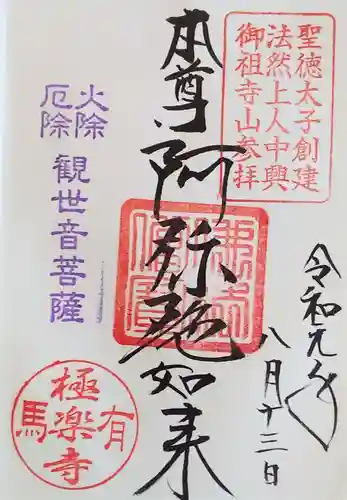 聖徳太子創建
法然上人中興
御祖寺山参拝
本尊阿弥陀如来
令和元年
八月十三日
火除
厄除
観世音菩薩
極楽寺
有馬